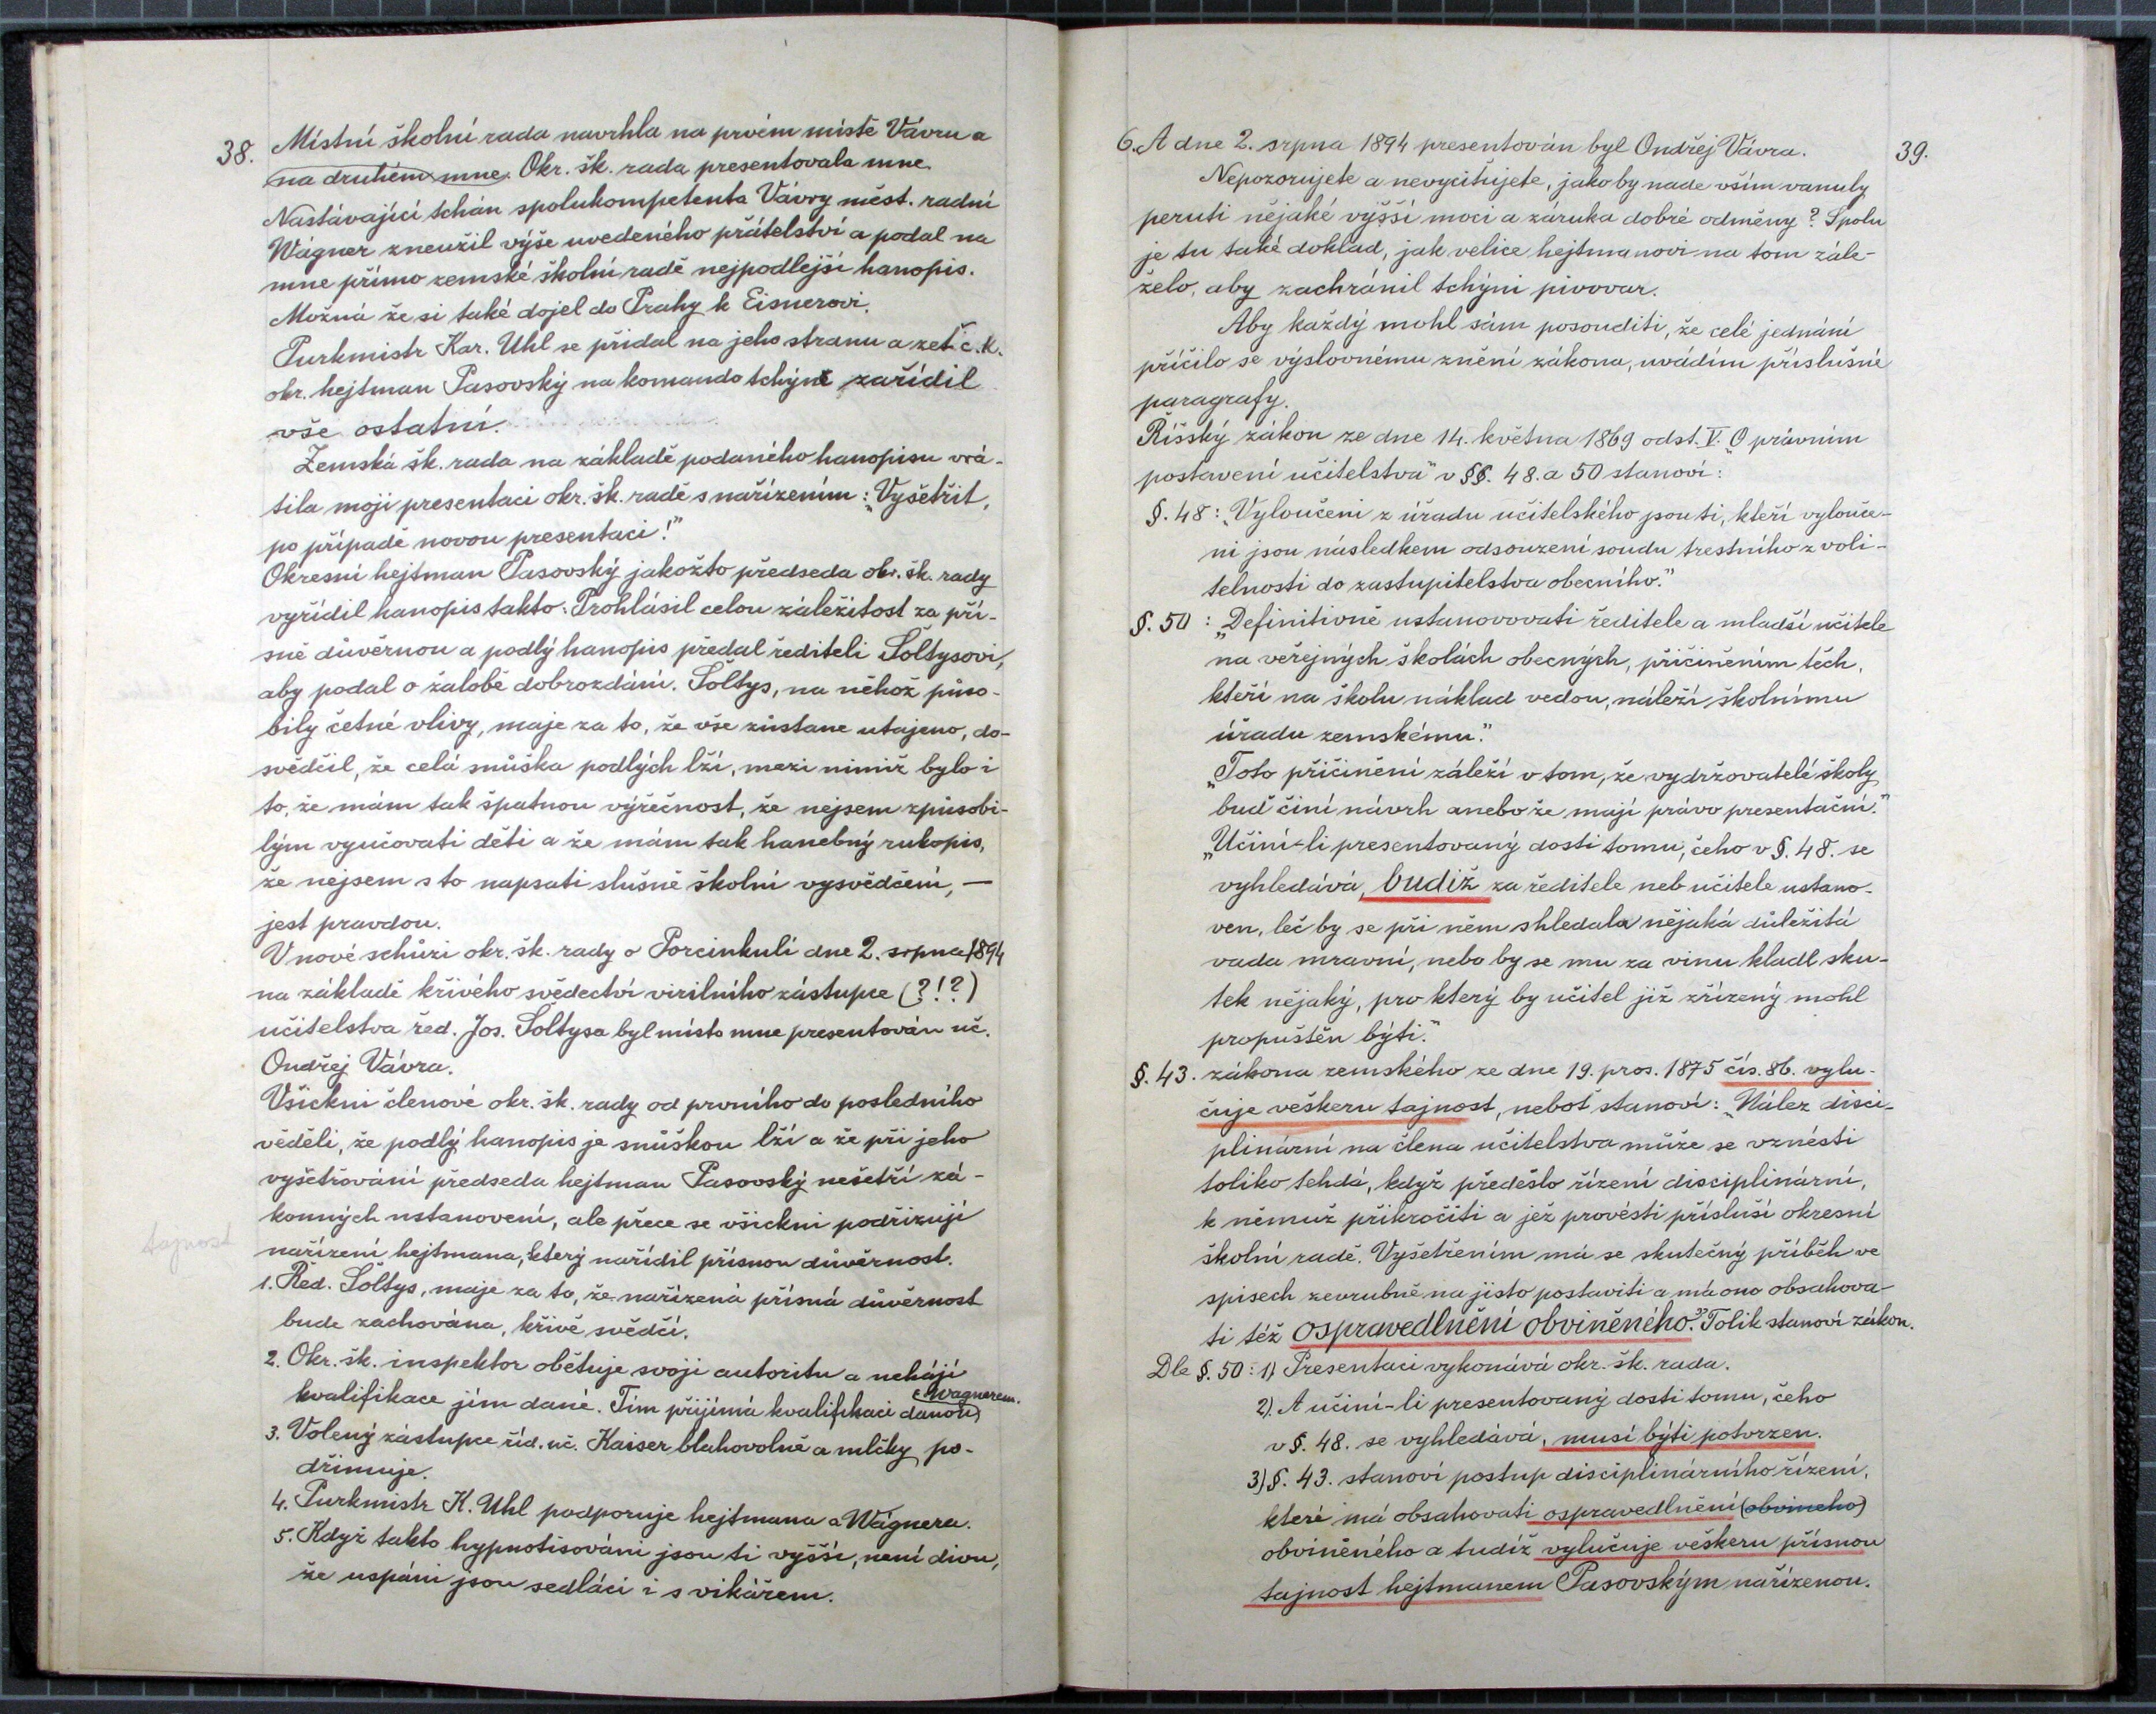 38.
Místní školní rada navrhla na prvém místě Vávru a
na druhém mne. Okr. šk. rada presentovala mne.
Nastávající tchán spolukompetenta Vávry měst. radní
Wágner zneužil výše uvedeného přátelství a podal na
mne přímo zemské školní radě nejpodlejší hanopis.
Možná že si také dojel do Prahy k Eisnerovi.
Purkmistr Kar. Uhl se přidal na jeho stranu a zeť c.k.
okr. hejtman Pasovský na komando tchýně zařídil
vše ostatní.
Zemská šk. rada na základě podaného hanopisu vrá-
tila moji presentaci okr. šk. radě s nařízením: „Vyšetřit,
po případě novou presentaci!"
Okresní hejtman Pasovský jakožto předseda okr. šk. rady
vyřídil hanopis takto: Prohlásil celou záležitost za pří-
sně důvěrnou a podlý hanopis předal řediteli Šoltysovi,
aby podal o žalobě dobrozdání. Šoltys, na něhož půso-
bily četné vlivy, maje za to, že vše zůstane utajeno, do-
svědčil, že celá snůška podlých lží, mezi nimiž bylo i
to, že mám tak špatnou výřečnost, že nejsem způsobi-
lým vyučovati děti a že mám tak hanebný rukopis,
že nejsem s to napsati slušně školní vysvědčení, —
jest pravdou.
V nové schůzi okr. šk. rady o Porcinkuli dne 2. srpna 1894
na základě křivého svědectví virilního zástupce (?!?)
učitelstva řed. Jos. Šoltysa byl místo mne presentován uč.
Ondřej Vávra.
Všickni členové okr. šk. rady od prvního do posledního
věděli, že podlý hanopis je snůškou lží a že při jeho
vyšetřování předseda hejtman Pasovský nešetří zá-
konných ustanovení, ale přece se všickni podřizují
tajnost
nařízení hejtmana, který nařídil přísnou důvěrnost.
1. Řed. Šoltys, maje za to, že nařízená přísná důvěrnost
bude zachována, křivě svědčí.
2. Okr. šk. inspektor obětuje svoji autoritu a nehájí
kvalifikace jím dané. Tím přijímá kvalifikaci danou
Wagnerem.
3. Volený zástupce říd. uč. Kaiser blahovolně a mlčky po-
dřimuje.
4. Purkmistr K. Uhl podporuje hejtmana a Wágnera.
5. Když takto hypnotisováni jsou ti vyšší, není divu,
že uspáni jsou sedláci i s vikářem.
39.
6. A dne 2. srpna 1894 presentován byl Ondřej Vávra.
Nepozorujete a nevycitujete, jako by nade vším vanuly
peruti nějaké vyšší moci a záruka dobré odměny? Spolu
je tu také doklad, jak velice hejtmanovi na tom zále-
želo, aby zachránil tchýni pivovar.
Aby každý mohl sám posouditi, že celé jednání
příčilo se výslovnému znění zákona, uvádím příslušné
paragrafy.
Říšský zákon ze dne 14. května 1869 odst. V. „O právním
postavení učitelstva" v §§. 48. a 50 stanoví:
§. 48: „Vyloučeni z úřadu učitelského jsou ti, kteří vylouče-
ni jsou následkem odsouzení soudu trestního z voli-
telnosti do zastupitelstva obecního."
§. 50: „Definitivně ustanovovati ředitele a mladší učitele
na veřejných školách obecných, přičiněním těch,
kteří na školu náklad vedou, náleží školnímu
úřadu zemskému."
„Toto přičinění záleží v tom, že vydržovatelé školy
buď činí návrh anebo že mají právo presentační."
„Učiní-li presentovaný dosti tomu, čeho v §. 48. se
vyhledává, budiž za ředitele neb učitele ustano-
ven, leč by se při něm shledala nějaká důležitá
vada mravní, nebo by se mu za vinu kladl sku-
tek nějaký, pro který by učitel již zřízený mohl
propuštěn býti."
§. 43. zákona zemského ze dne 19. pros. 1875 čís. 86. vylu-
čuje veškeru tajnost, neboť stanoví: „Nález disci-
plinární na člena učitelstva může se vznésti
toliko tehdá, když předešlo řízení disciplinární,
k němuž přikročiti a jež provésti přísluší okresní
školní radě. Vyšetřením má se skutečný příběh ve
spisech zevrubně na jisto postaviti a má ono obsahova-
ti též ospravedlnění obviněného." Tolik stanoví zákon.
Dle §. 50: 1) Presentaci vykonává okr. šk. rada.
2). A učiní-li presentovaný dosti tomu, čeho
v §. 48. se vyhledává, musí býti potvrzen.
3) §. 43. stanoví postup disciplinárního řízení,
které má obsahovati ospravedlnění (obvineho)
obviněného a tudíž vylučuje veškeru přísnou
tajnost hejtmanem Pasovským nařízenou.